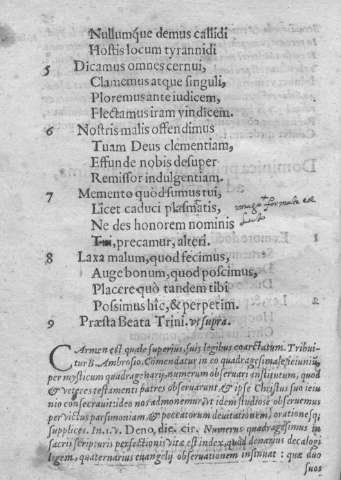 Nullumque demus callidi
Hostis locum tyrannidi
5 Dicamus omnes cernui,
Clamemus atque singuli,
Ploremus ante iudicem,
Flectamus iram vindicem.
6 Nostris malis offendimus
Tuam Deus clementiam,
Effunde nobis desuper
Remissor indulgentiam.
7 Memento quòd sumus tui,
Licet caduci plasmatis,
Ne des honorem nominis
Tui, precamur, alteri.
8 Laxa malum, quod fecimus,
Auge bonum, quod poscimus,
Placere quò tandem tibi
Possimus hîc, & perpetim.
9 Præsta Beata Trini. vt supra.
CArmen est quale superius, suis legibus coarctatum. Tribui-
tur B. Ambrosio. Comendatur in eo quadragesimale ieiuniũ,
per mysticum quadragenariũ, numerum obseruari institutum, quod
& veteres testamenti patres obseruarunt, & ipse Christus suo ieiu
nio consecrauit: ideo nos admonemur, vt idem studiose obseruemus
per victus parsimoniam, & peccatorum deuitationem, oratione sq́;
supplices. In. 1. v. Deno, dic. cir. Numerus quadragesimus in
sacris scripturis perfectionis vitæ est index, quod denarius decalogi
legem, quaternarius euangelij obseruationem insinuat : quæ duo
suos